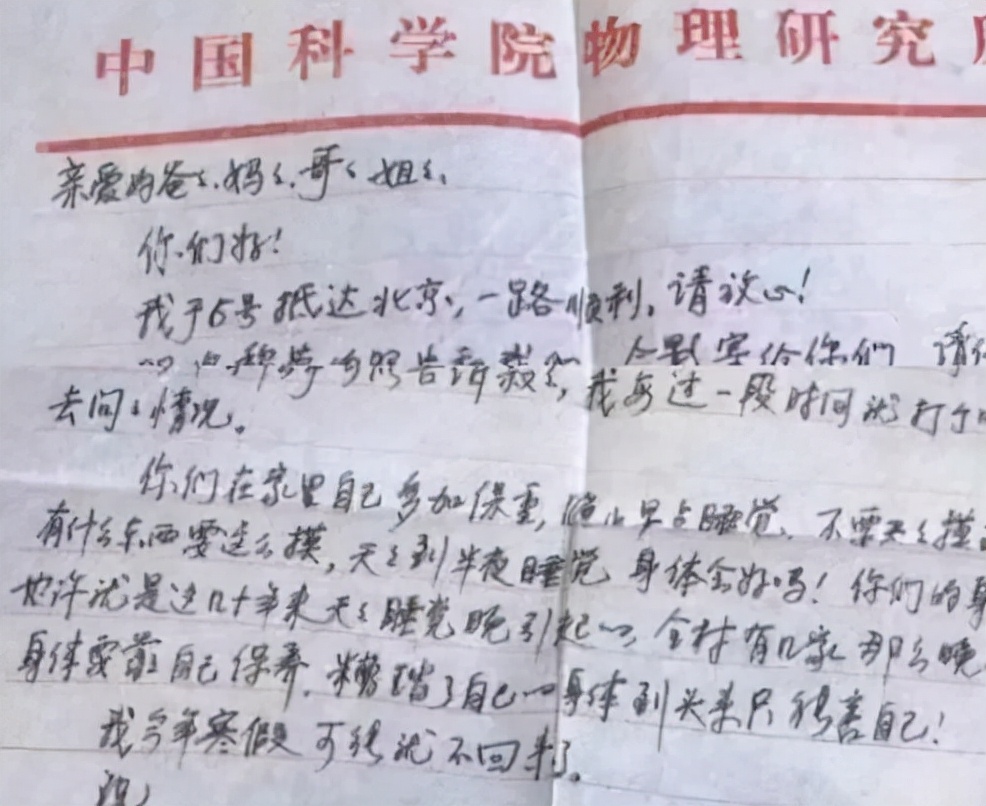 中国科学院物理研究
亲爱的爸爸、妈妈、哥哥、姐姐、
你们好!
我于6号抵达北京,一路顺利,请放心!
告诉我们 你们 请
去问问情况。我每过一段时间就打个
你们在家里自己多加保重,晚上早点睡觉、不要天天摸
有什么东西要这么摸,天天到半夜睡觉 身体会好吗!你们的身
也许就是这几十年来天天睡觉晚引起的,全村有几家那么晚
身体要靠自己保养,糟蹋了自己的身体到头来只能害自己!
我今年寒假可能就不回来了。